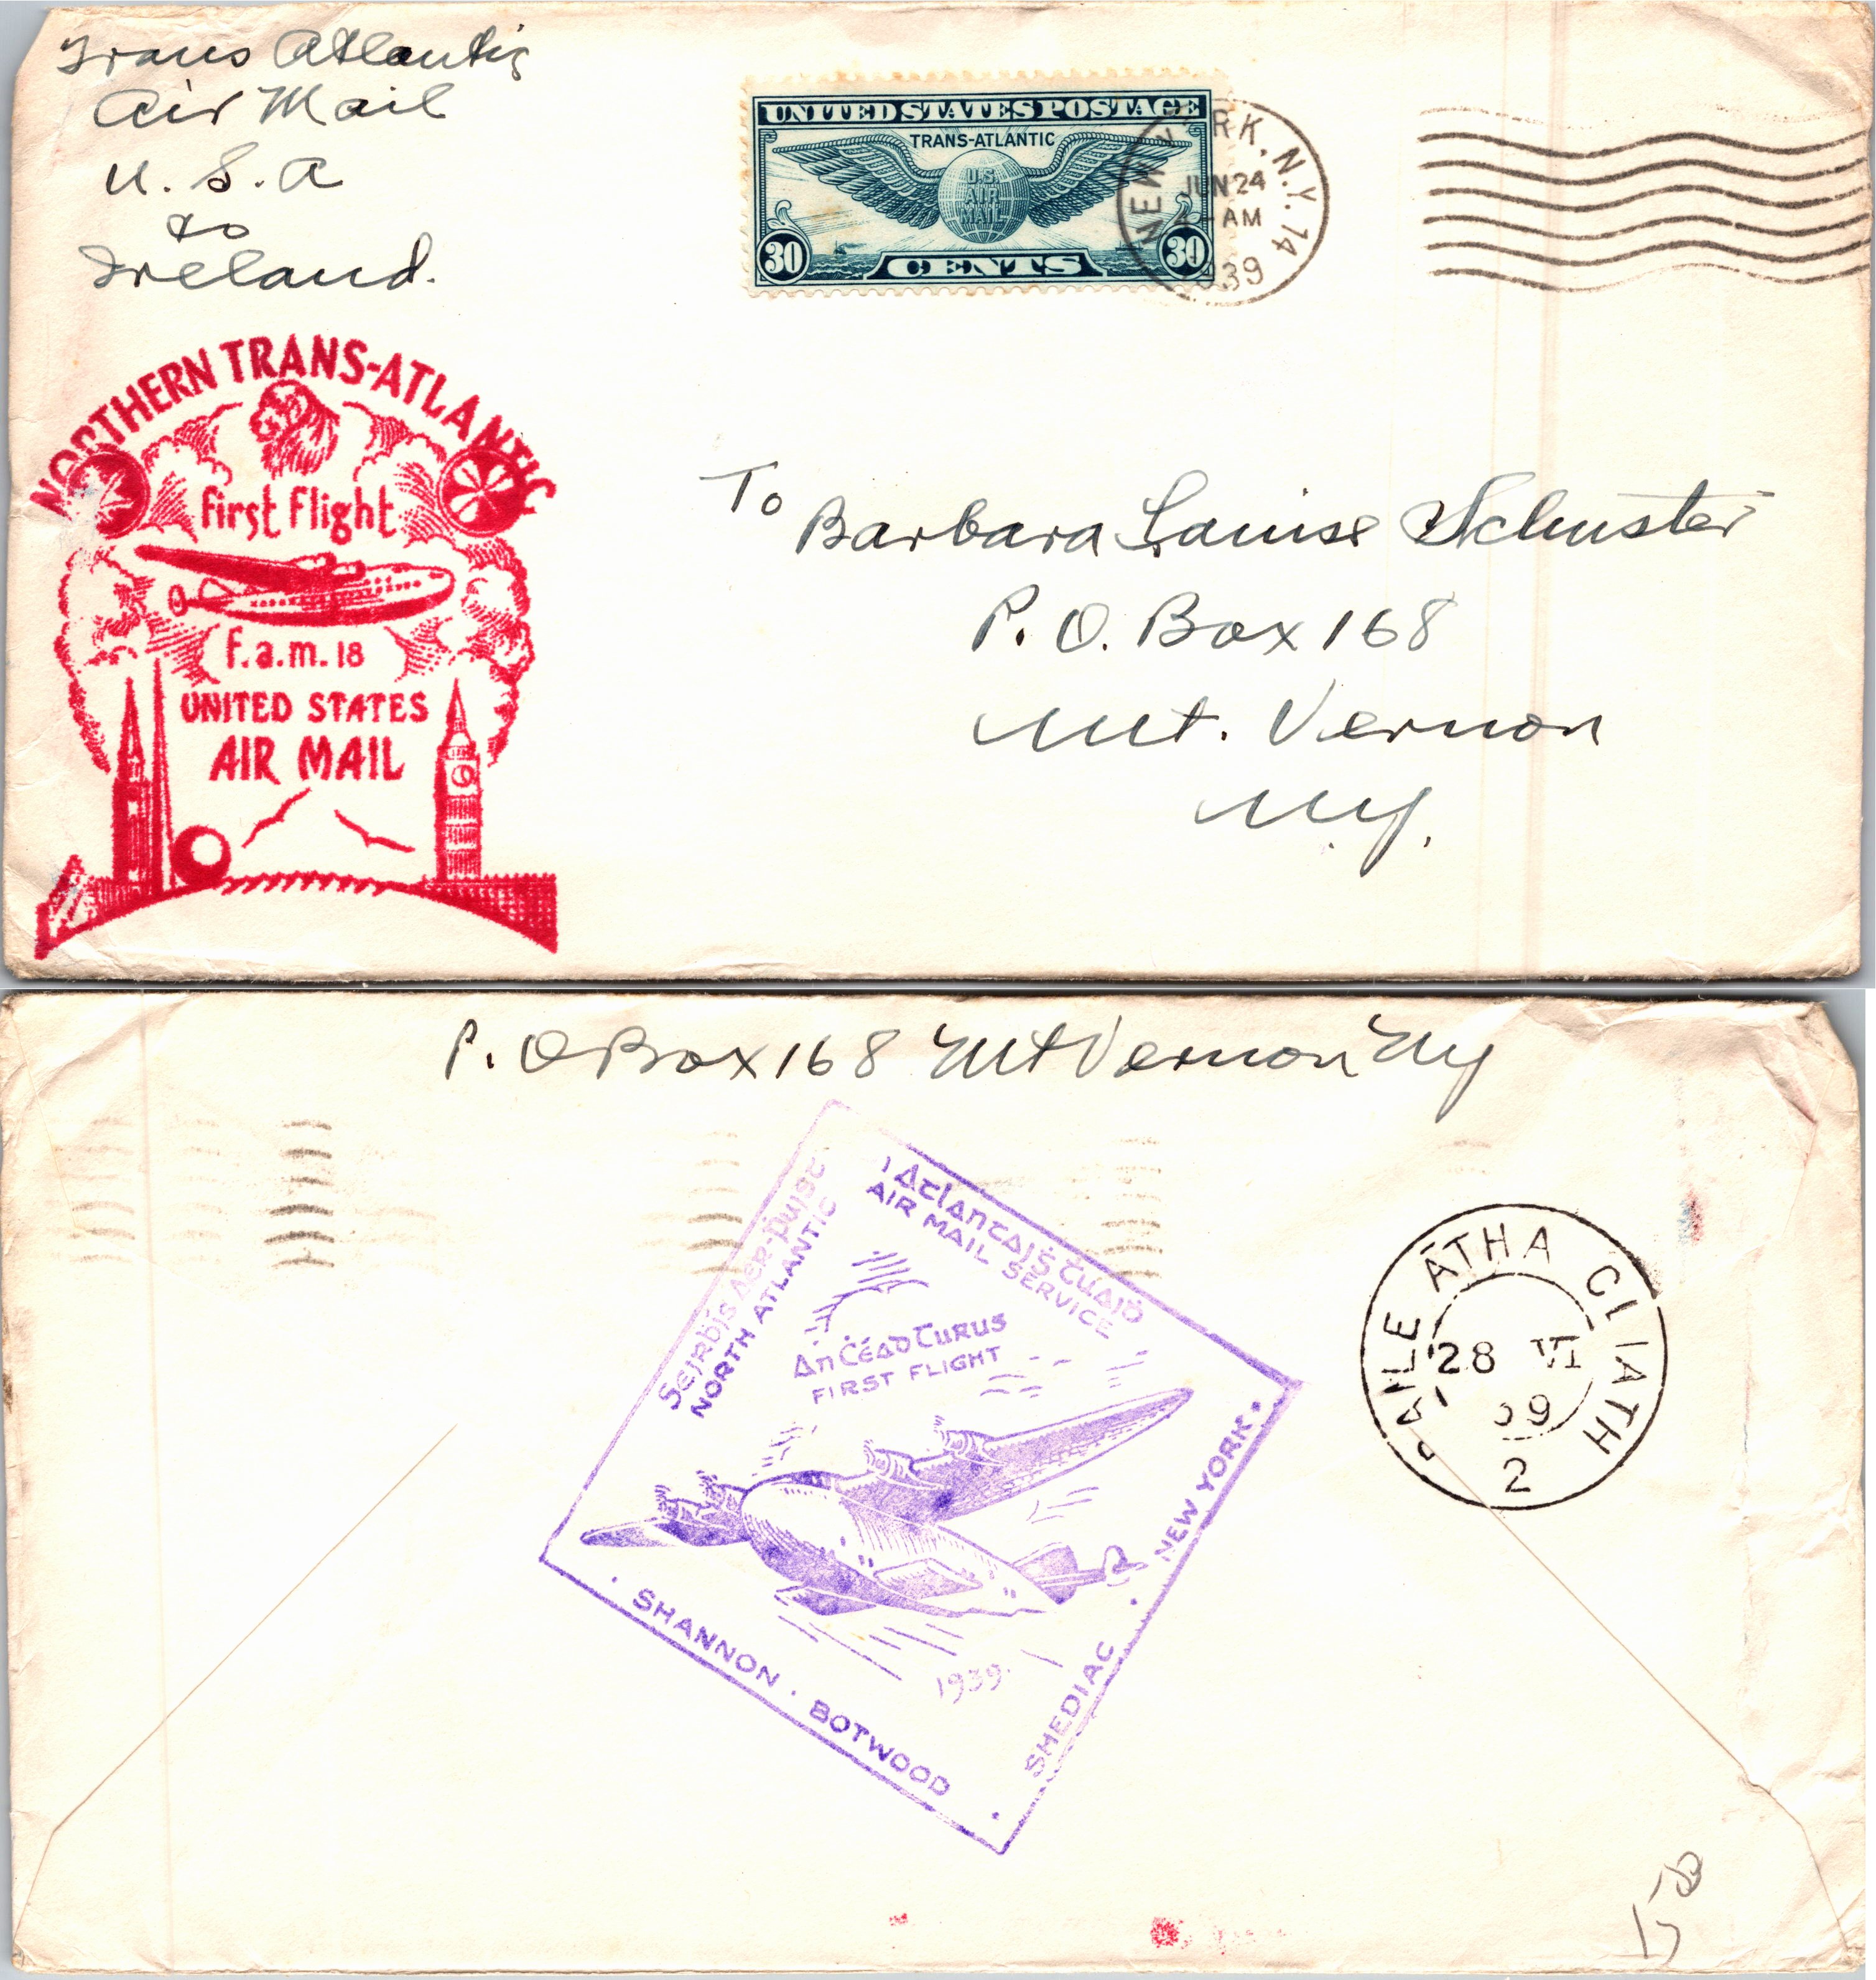 Trans Atlantic
Air Mail
U. S. A
to
Ireland.
UNITED STATES POSTAGE
TRANS-ATLANTIC
U.S.
AIR
MAIL
30 CENTS 30
NEW YORK, N.Y. 14
JUN 24
4-AM
1939
NORTHERN TRANS-ATLANTIC
first flight
f.a.m. 18
UNITED STATES
AIR MAIL
To Barbara Louise Schuster
P. O. Box 168
Mt. Vernon
N.Y.
P. O Box 168 Mt Vernon NY
Seirbís Aer-Puist
NORTH ATLANTIC
Atlantaiġ Ṫuaiḋ
AIR MAIL SERVICE
An Ċéad Turus
FIRST FLIGHT
1939
· SHANNON · BOTWOOD ·
SHEDIAC · NEW YORK ·
BAILE ÁTHA CLIATH
28 VI
39
2